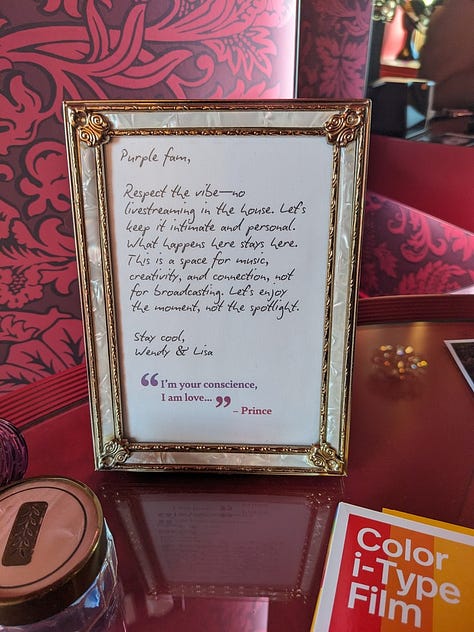 Purple fam,
Respect the vibe—no
livestreaming in the house. Let's
keep it intimate and personal.
What happens here stays here.
This is a space for music,
creativity, and connection, not
for broadcasting. Let's enjoy
the moment, not the spotlight.
Stay cool,
Wendy & Lisa
“I'm your conscience,
I am love...”
– Prince
Color
i-Type
Film